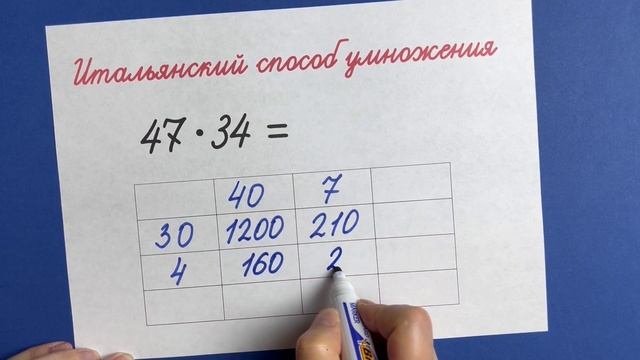 Итальянский способ умножения
47 · 34 =
40 7
30 1200 210
4 160 2